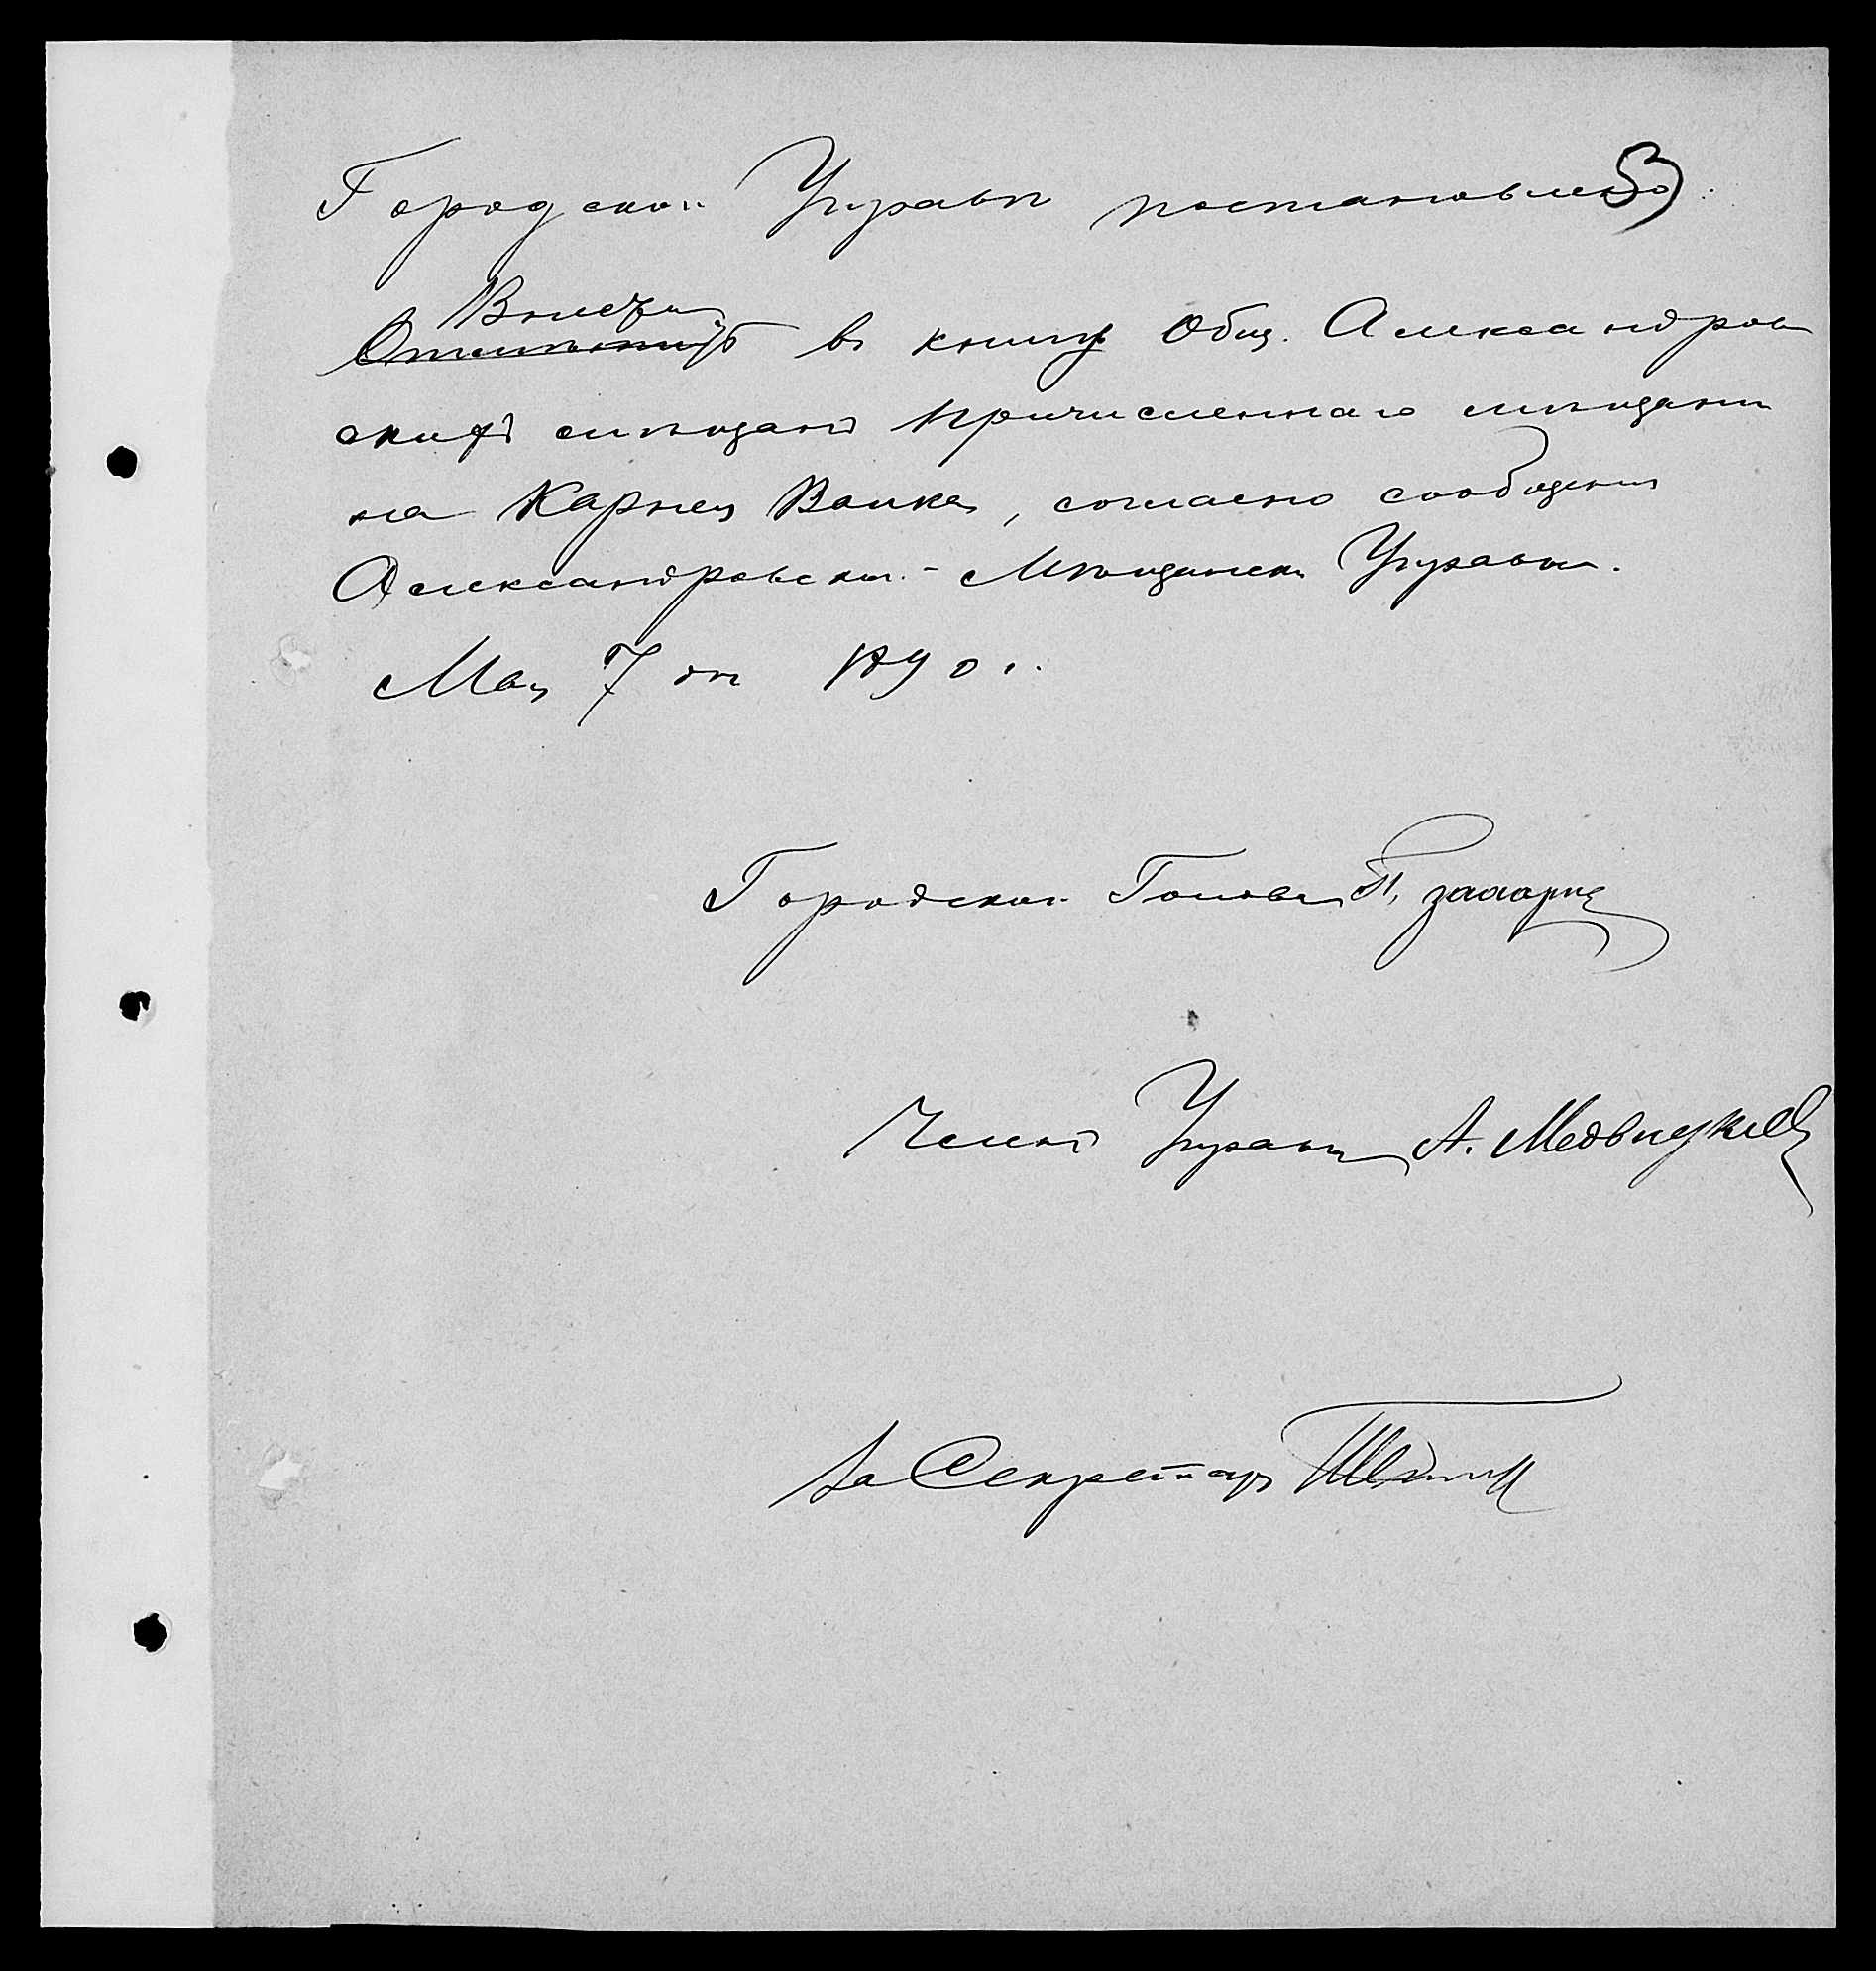 Городской Управѣ постановлено:
53
Внести
Отмѣтить въ книгу Общ. Александров
скихъ мѣщанъ причисленнаго мѣщани
на Карнея Волка, согласно сообщенія
Александровской Мѣщанской Управы.
Мая 7 дня 1890 г.
Городской Голова П. Захарин
Членъ Управы А. Медвѣдков
За Секретаря